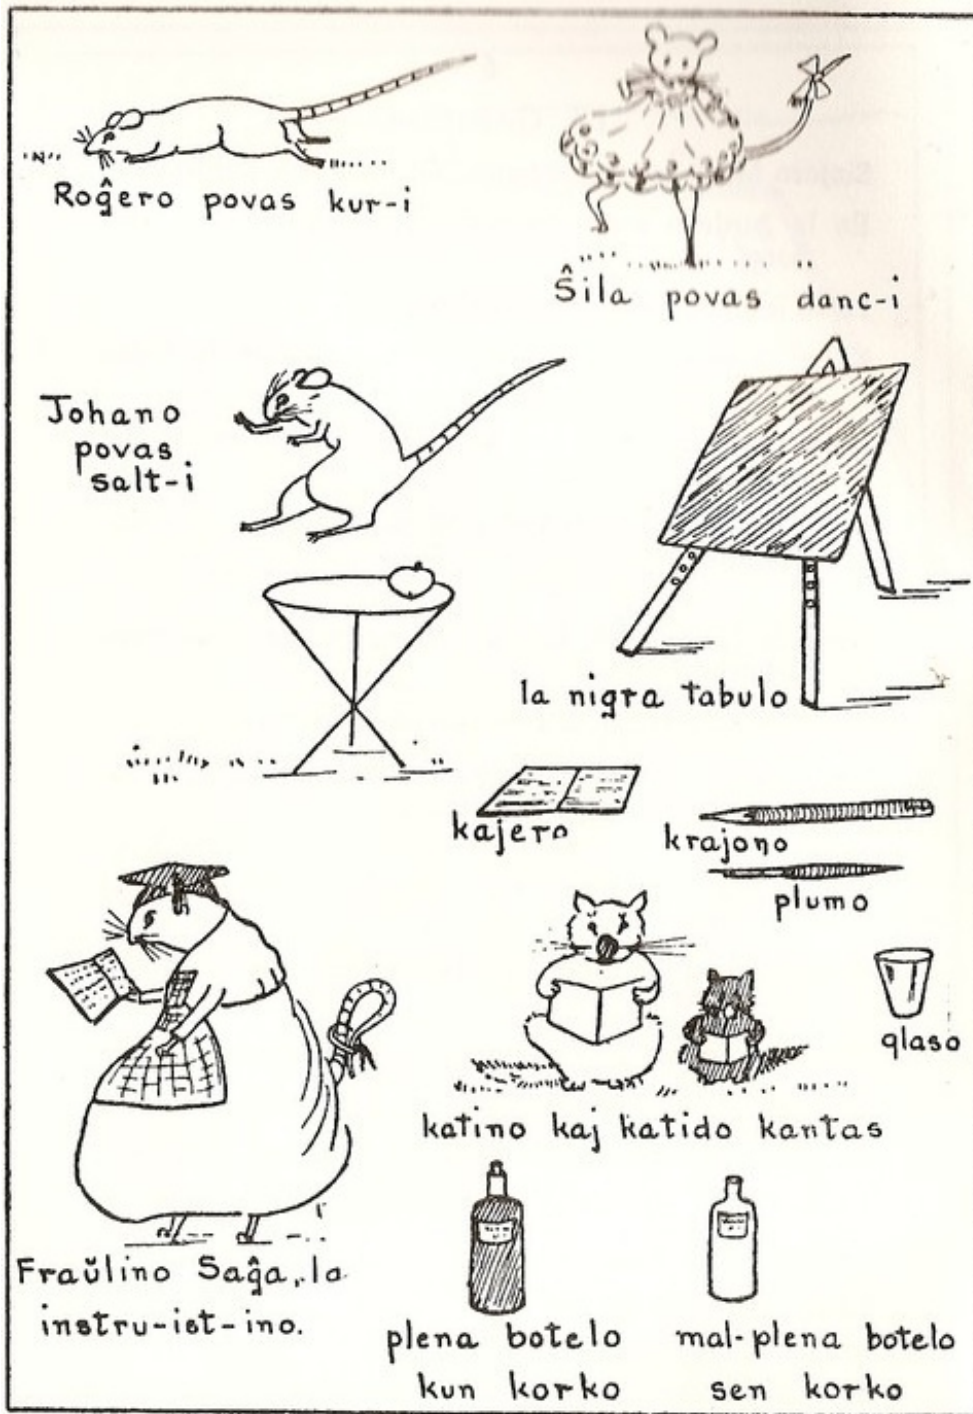 Roĝero povas kur-i
Ŝila povas danc-i
Johano
povas
salt-i
la nigra tabulo
kajero
krajono
plumo
glaso
katino kaj katido kantas
Fraŭlino Saĝa, la
instru-ist-ino.
plena botelo
kun korko
mal-plena botelo
sen korko